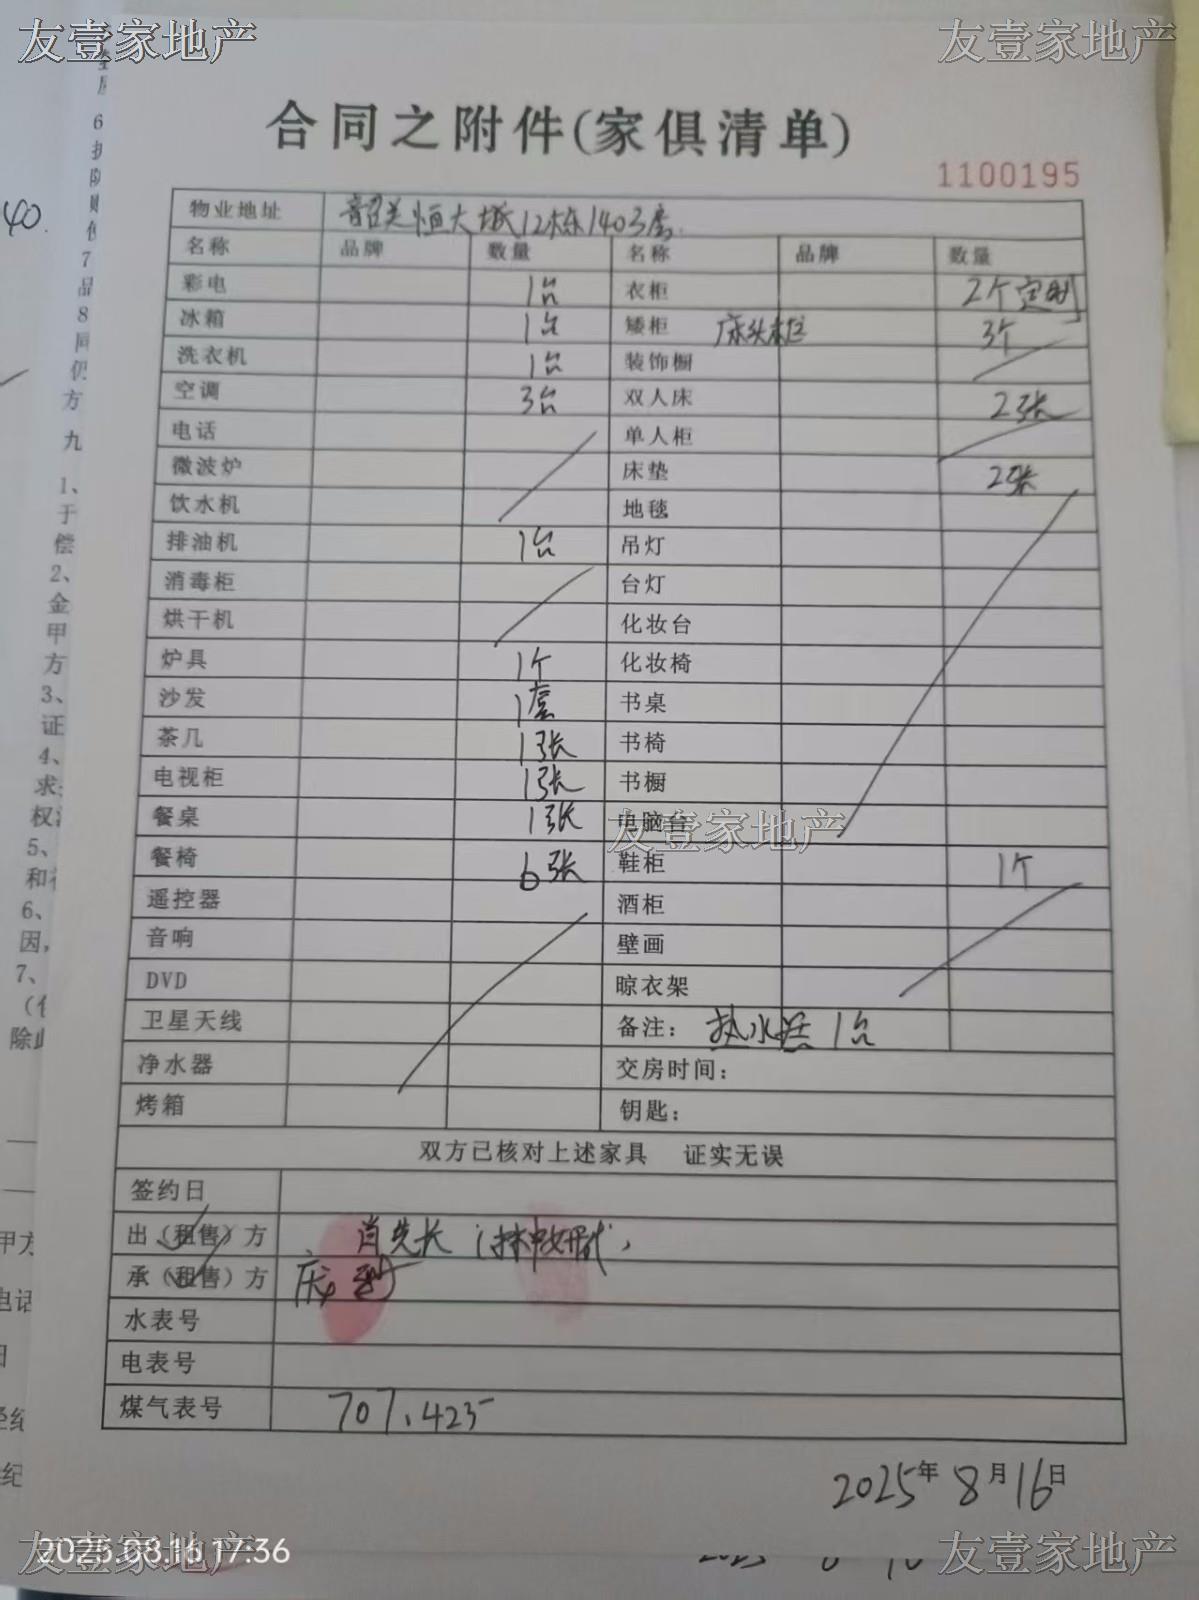 友壹家地产 友壹家地产
合同之附件(家俱清单)
1100195
物业地址 韶关恒大城12栋1403房.
名称 品牌 数量 名称 品牌 数量
彩电 1台 衣柜 2个定制
冰箱 1台 矮柜 床头柜 3个
洗衣机 1台 装饰橱
空调 3台 双人床 2张
电话 单人柜
微波炉 床垫 2张
饮水机 地毯
排油机 1台 吊灯
消毒柜 台灯
烘干机 化妆台
炉具 1个 化妆椅
沙发 1套 书桌
茶几 1张 书椅
电视柜 1张 书橱
餐桌 1张 电脑台
友壹家地产
餐椅 6张 鞋柜 1个
遥控器 酒柜
音响 壁画
DVD 晾衣架
卫星天线 备注: 热水器 1台
净水器 交房时间:
烤箱 钥匙:
双方已核对上述家具 证实无误
签约日
出(租售)方
承(租售)方
水表号
电表号
煤气表号 707.425
2025年 8月16日
友壹家地产 友壹家地产
2025.08.16 17:36
40.
6
7
品
8
同
仍
方
九
1、
于
偿
2、
金
甲
方
3、
证
4、
求
权
5、
和
6、
因,
7、
除此
甲方
电话